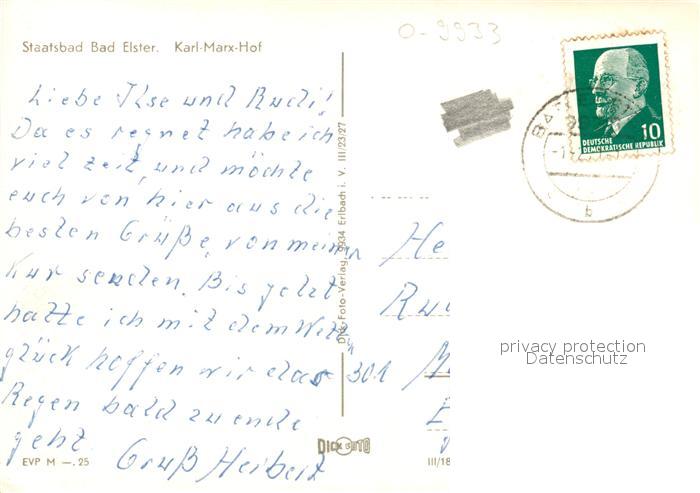 O-9933
Staatsbad Bad Elster. Karl-Marx-Hof
10
DEUTSCHE
DEMOKRATISCHE REPUBLIK
BA
b
Liebe Ilse und Rudi!
Da es regnet habe ich
viel Zeit, und möchte
euch von hier aus die
besten Grüße, von meiner
Kur senden. Bis jetzt
hatte ich mit dem
glück hoffen wir das
Regen bald zu ende
geht.
Gruß Heibert
301
He
Ru
Dick-Foto-Verlag, 9934 Erlbach i. V. III/23/27
privacy protection
Datenschutz
DICK FOTO
EVP M —.25
III/18